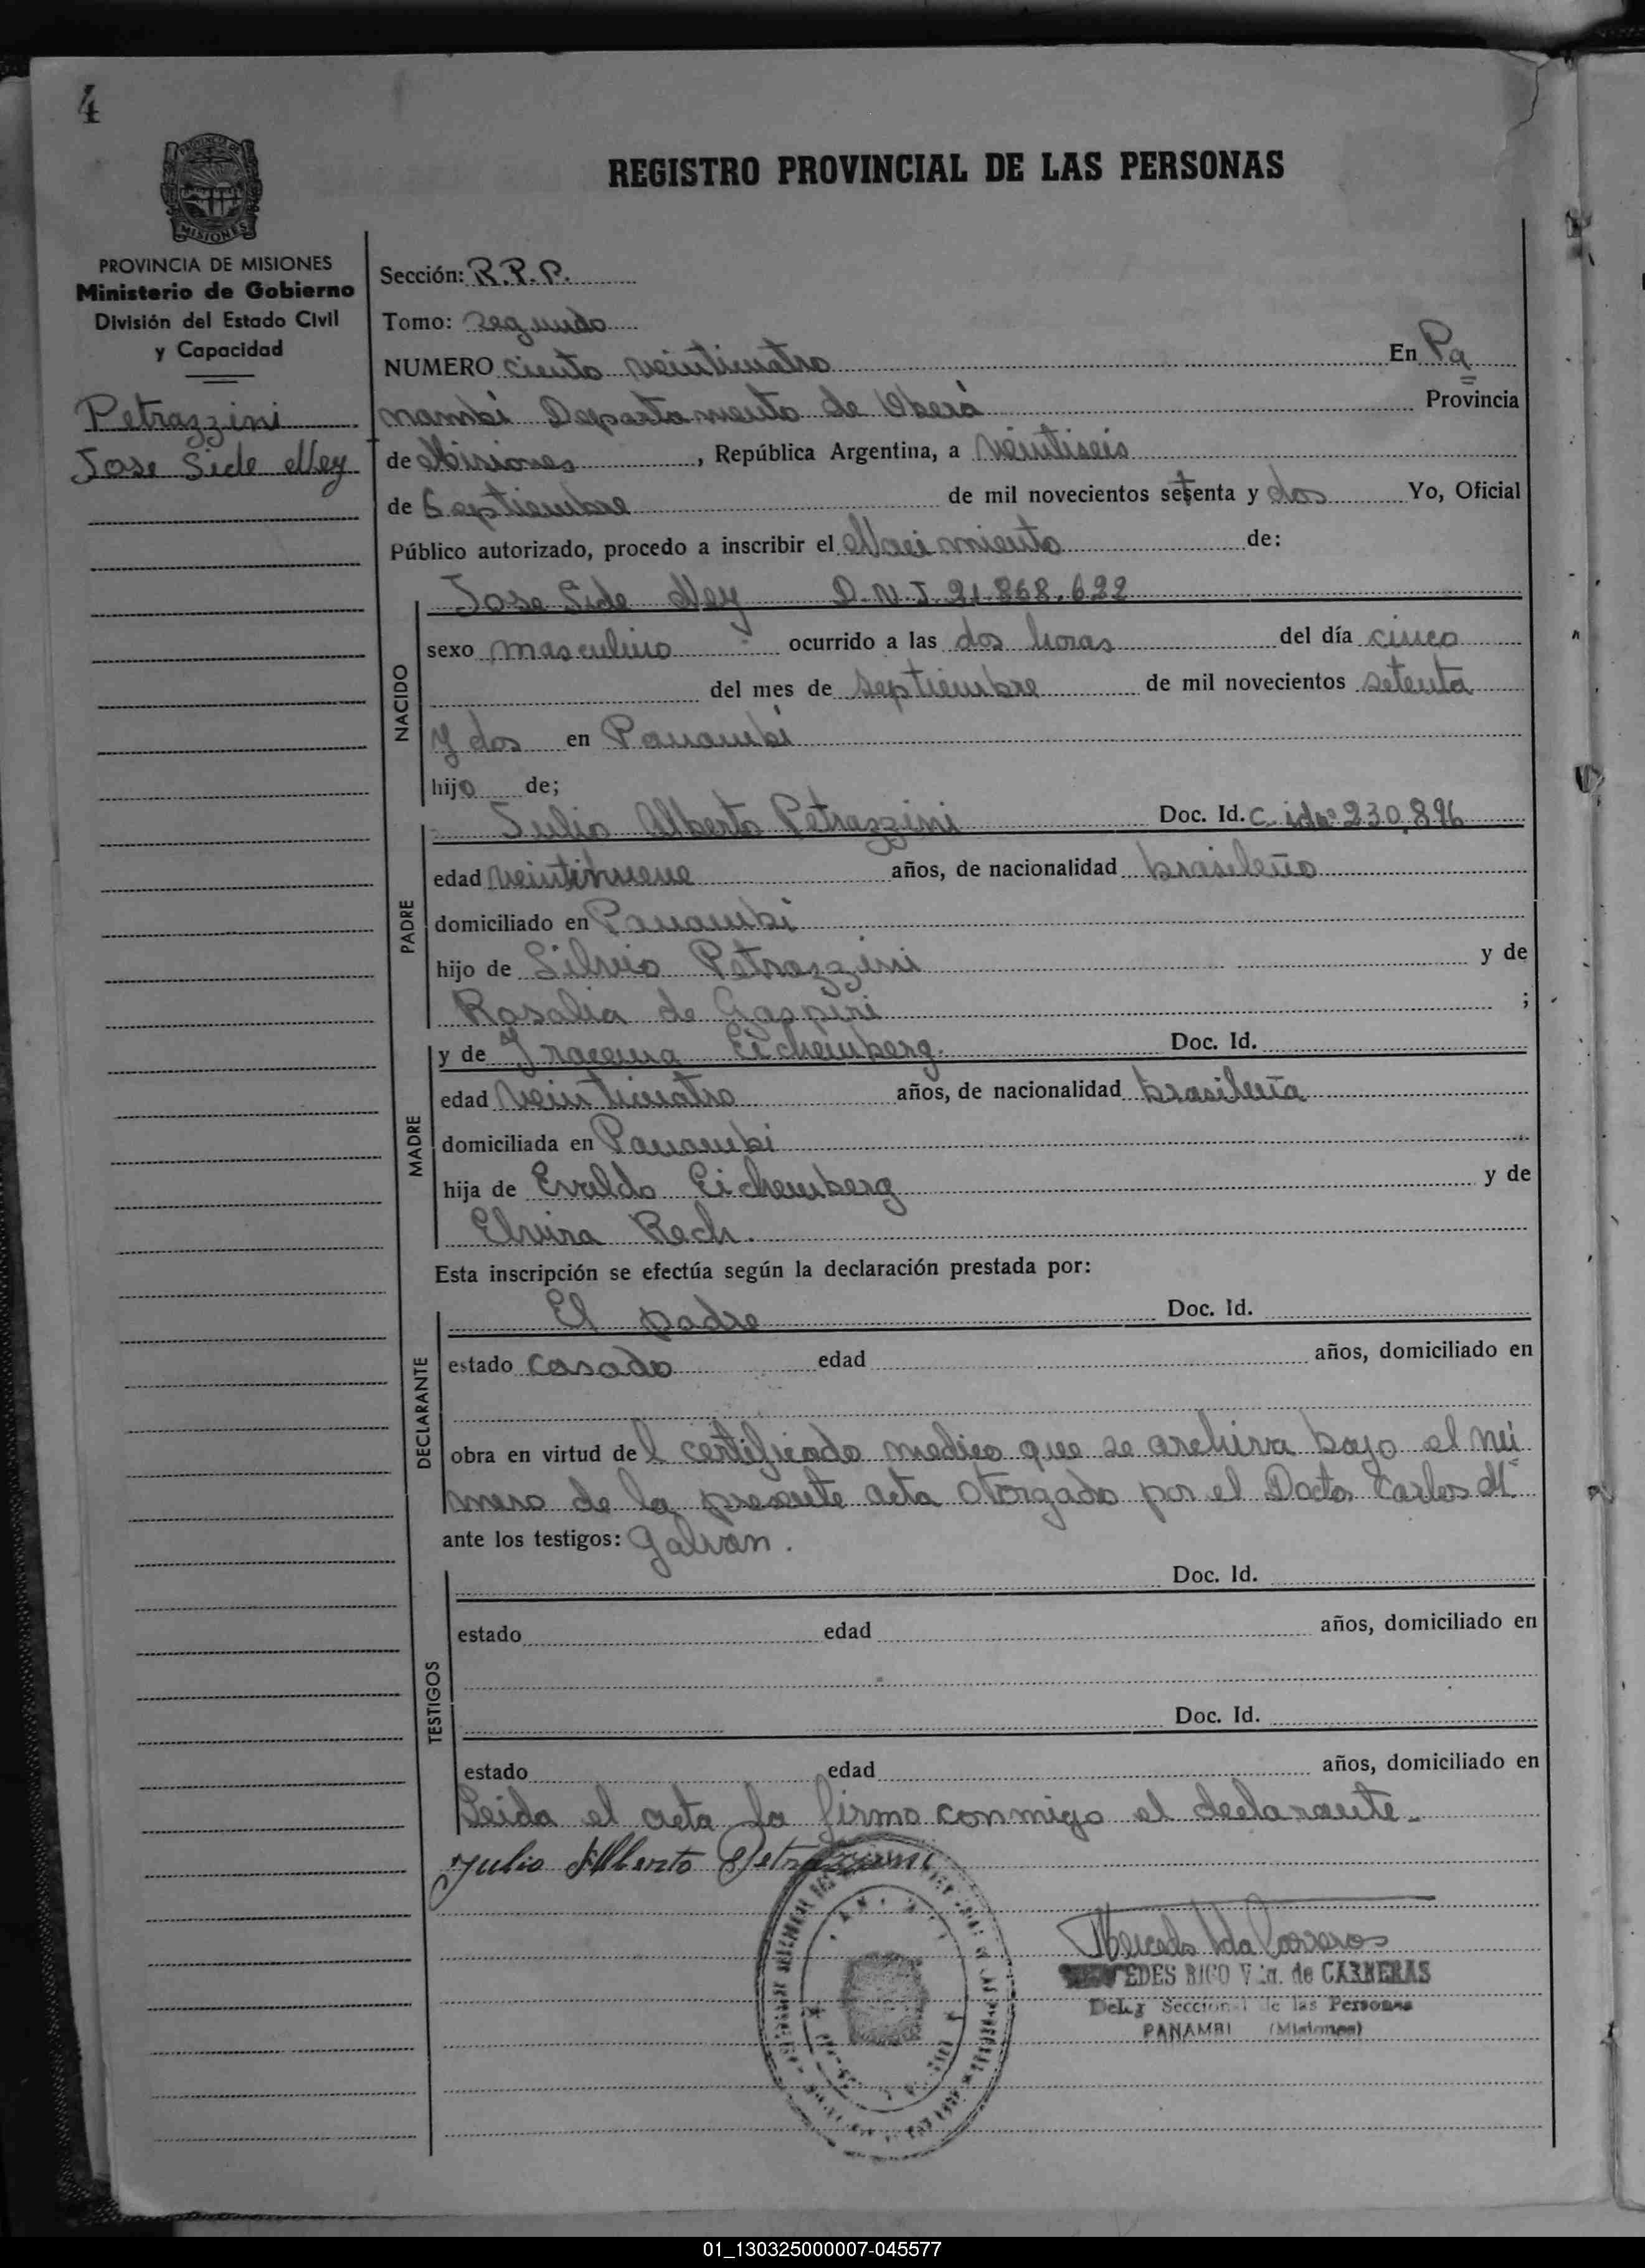 4
REGISTRO PROVINCIAL DE LAS PERSONAS
MISIONES
PROVINCIA DE MISIONES
Ministerio de Gobierno
División del Estado Civil
y Capacidad
Petrazzini
Jose Side Ney
Sección: R.P.P.
Tomo: segundo
NUMERO ciento veinticuatro En Pa
nambi Departamento de Oberá Provincia
de Misiones, República Argentina, a veintiseis
de Septiembre de mil novecientos setenta y dos Yo, Oficial
Público autorizado, procedo a inscribir el Nacimiento de:
NACIDO
Jose Side Ney D.N.I. 21.868.622
sexo masculino ocurrido a las dos horas del día cinco
del mes de septiembre de mil novecientos setenta
y dos en Panambi
hijo de;
PADRE
Julio Alberto Petrazzini Doc. Id. c. idnº 230.896
edad veintinueve años, de nacionalidad brasileño
domiciliado en Panambi
hijo de Silvio Petrazzini y de
Rosalia de Gaspiri ;
MADRE
y de Iracema Eichemberg. Doc. Id.
edad veinticuatro años, de nacionalidad brasileña
domiciliada en Panambi
hija de Evaldo Eichemberg y de
Elvira Rech.
Esta inscripción se efectúa según la declaración prestada por:
DECLARANTE
El padre Doc. Id.
estado casado edad años, domiciliado en
obra en virtud del certificado medico que se archiva bajo el nú
mero de la presente acta otorgado por el Doctor Carlos M
ante los testigos: Galvan.
TESTIGOS
Doc. Id.
estado edad años, domiciliado en
Doc. Id.
estado edad años, domiciliado en
Leida el acta la firma conmigo el declarante.
Julio Alberto Petrazzini
EDES RICO Vda. de CARNERAS
Deleg Seccional de las Personas
PANAMBI (Misiones)
01_130325000007-045577